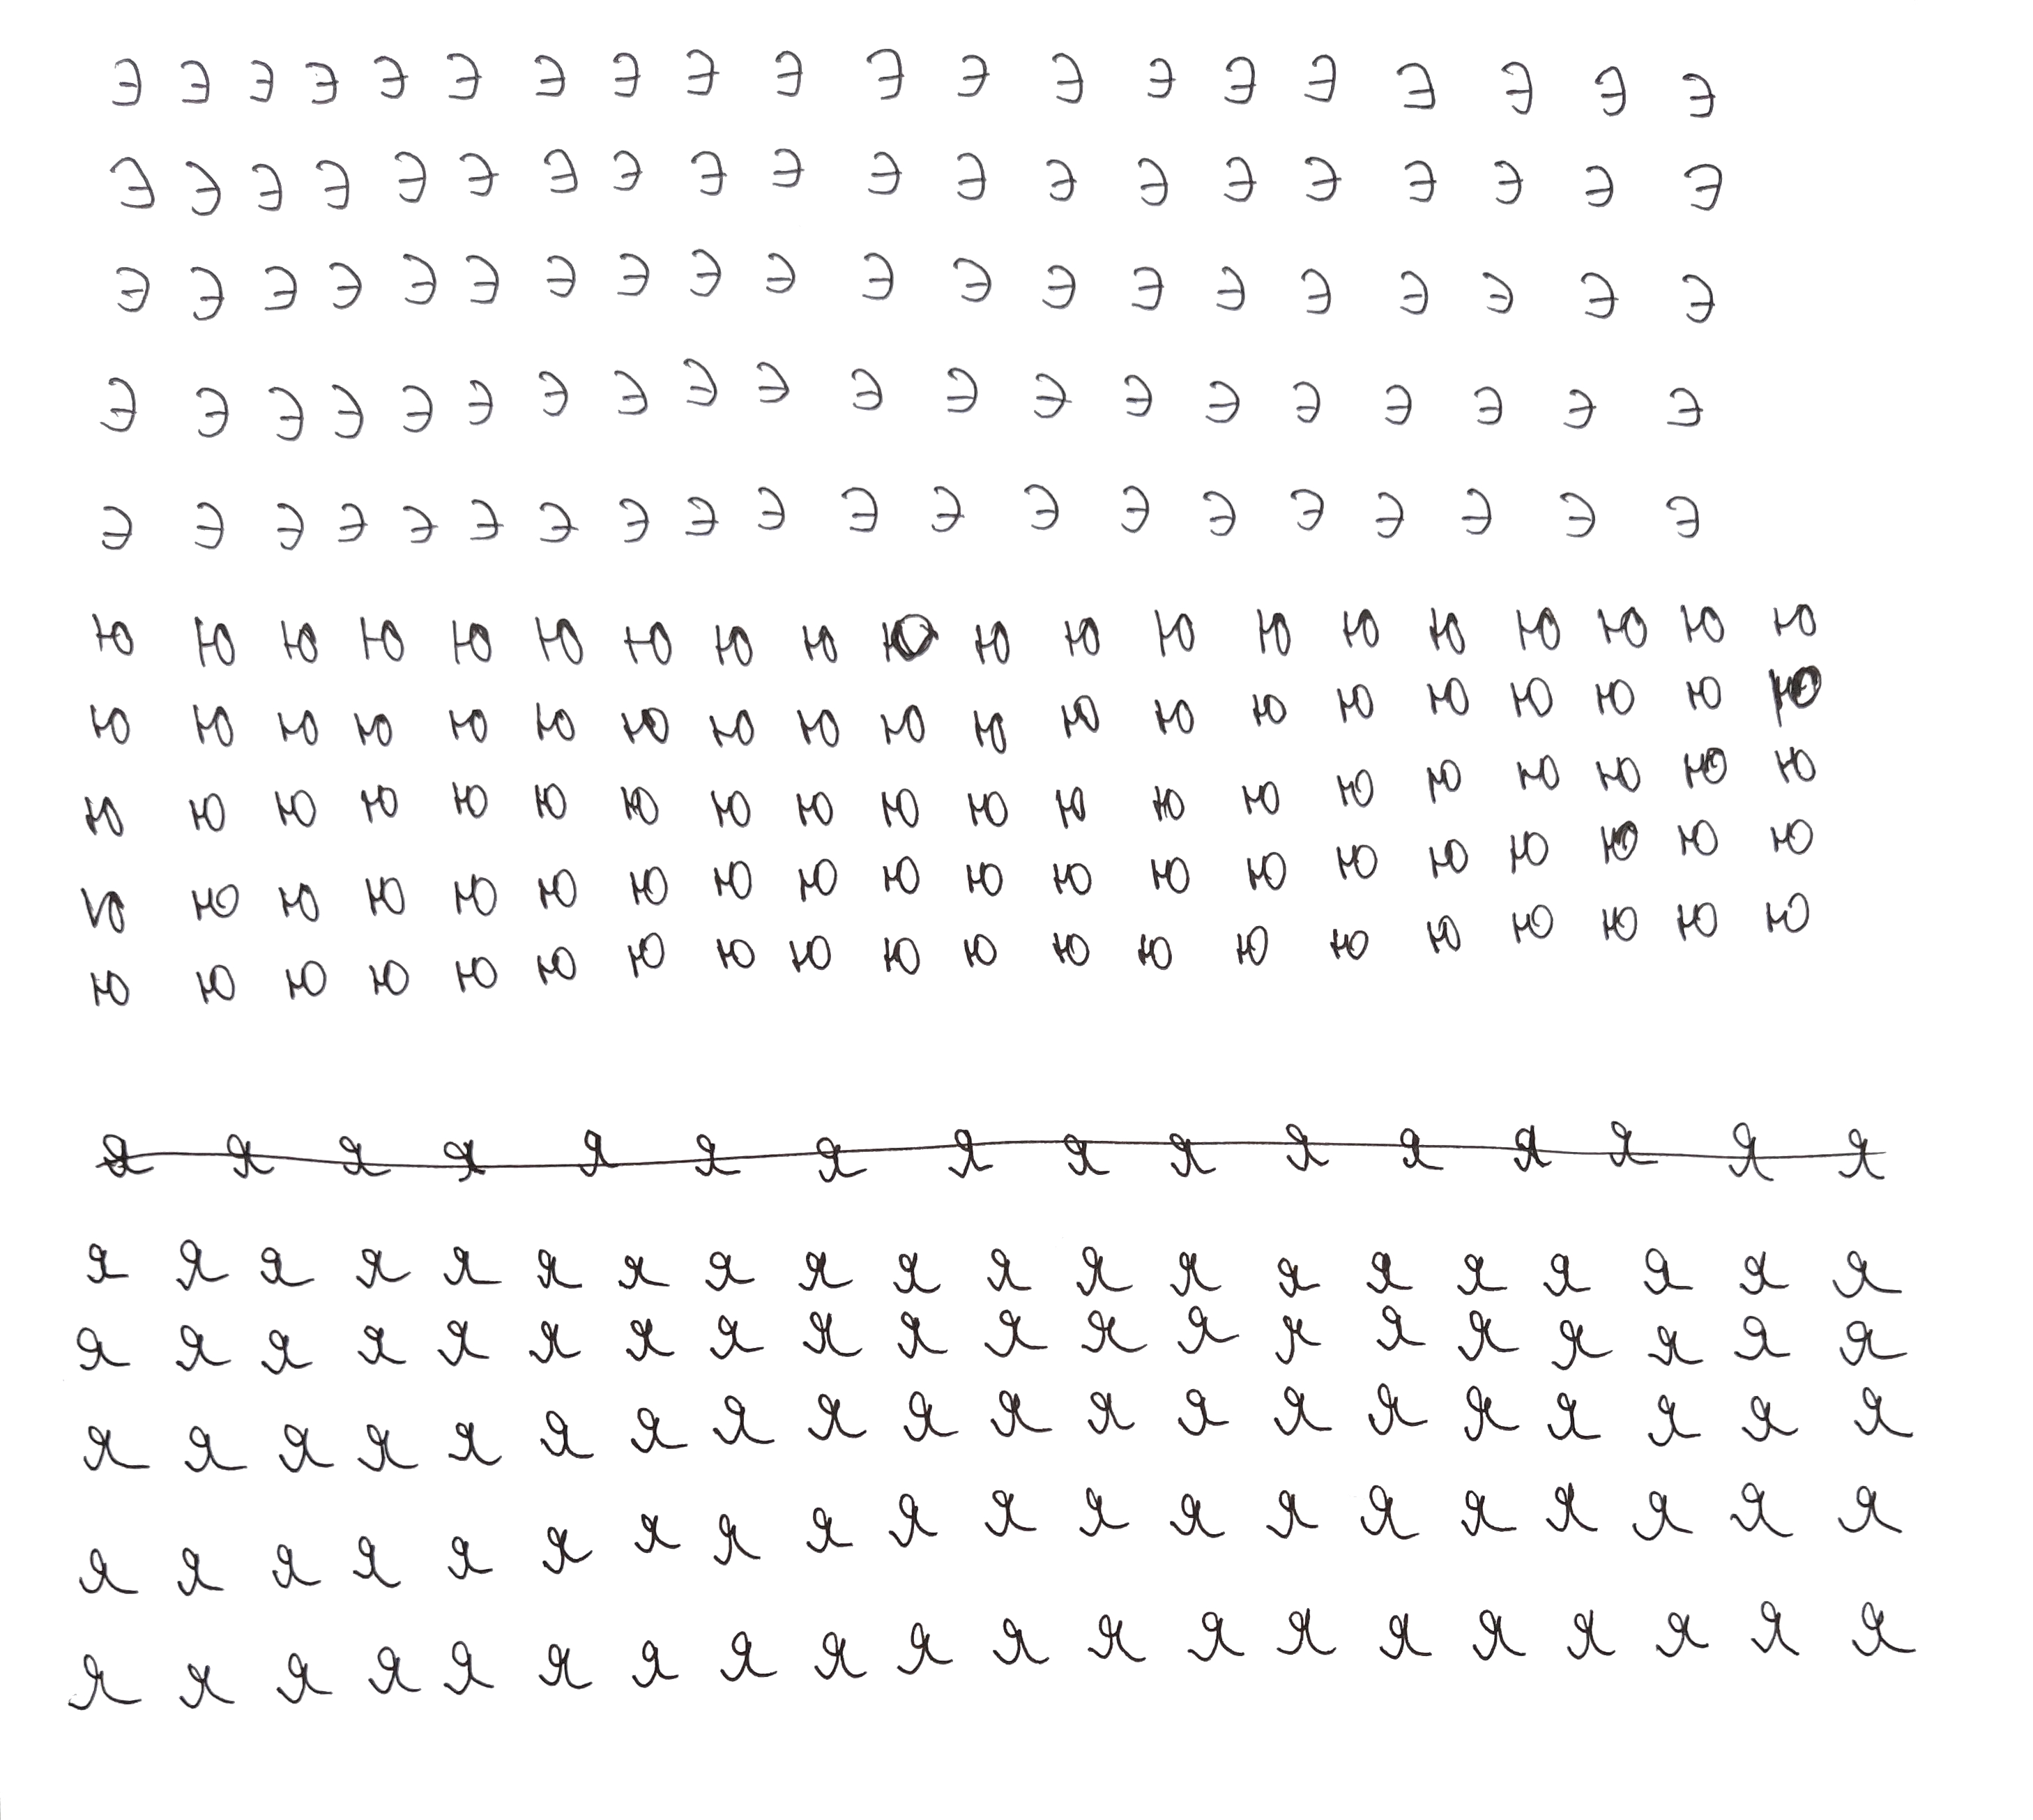 Э Э Э Э Э Э Э Э Э Э Э Э Э Э Э Э Э Э Э Э
Э Э Э Э Э Э Э Э Э Э Э Э Э Э Э Э Э Э Э Э
Э Э Э Э Э Э Э Э Э Э Э Э Э Э Э Э Э Э Э Э
Э Э Э Э Э Э Э Э Э Э Э Э Э Э Э Э Э Э Э Э
Э Э Э Э Э Э Э Э Э Э Э Э Э Э Э Э Э Э Э Э
Ю Ю Ю Ю Ю Ю Ю Ю Ю Ю Ю Ю Ю Ю Ю Ю Ю Ю Ю Ю
Ю Ю Ю Ю Ю Ю Ю Ю Ю Ю Ю Ю Ю Ю Ю Ю Ю Ю Ю Ю
Ю Ю Ю Ю Ю Ю Ю Ю Ю Ю Ю Ю Ю Ю Ю Ю Ю Ю Ю Ю
Ю Ю Ю Ю Ю Ю Ю Ю Ю Ю Ю Ю Ю Ю Ю Ю Ю Ю Ю Ю
Ю Ю Ю Ю Ю Ю Ю Ю Ю Ю Ю Ю Ю Ю Ю Ю Ю Ю Ю Ю
Я Я Я Я Я Я Я Я Я Я Я Я Я Я Я Я
Я Я Я Я Я Я Я Я Я Я Я Я Я Я Я Я Я Я Я Я
Я Я Я Я Я Я Я Я Я Я Я Я Я Я Я Я Я Я Я Я
Я Я Я Я Я Я Я Я Я Я Я Я Я Я Я Я Я Я Я Я
Я Я Я Я Я Я Я Я Я Я Я Я Я Я Я Я Я Я Я Я
Я Я Я Я Я Я Я Я Я Я Я Я Я Я Я Я Я Я Я Я